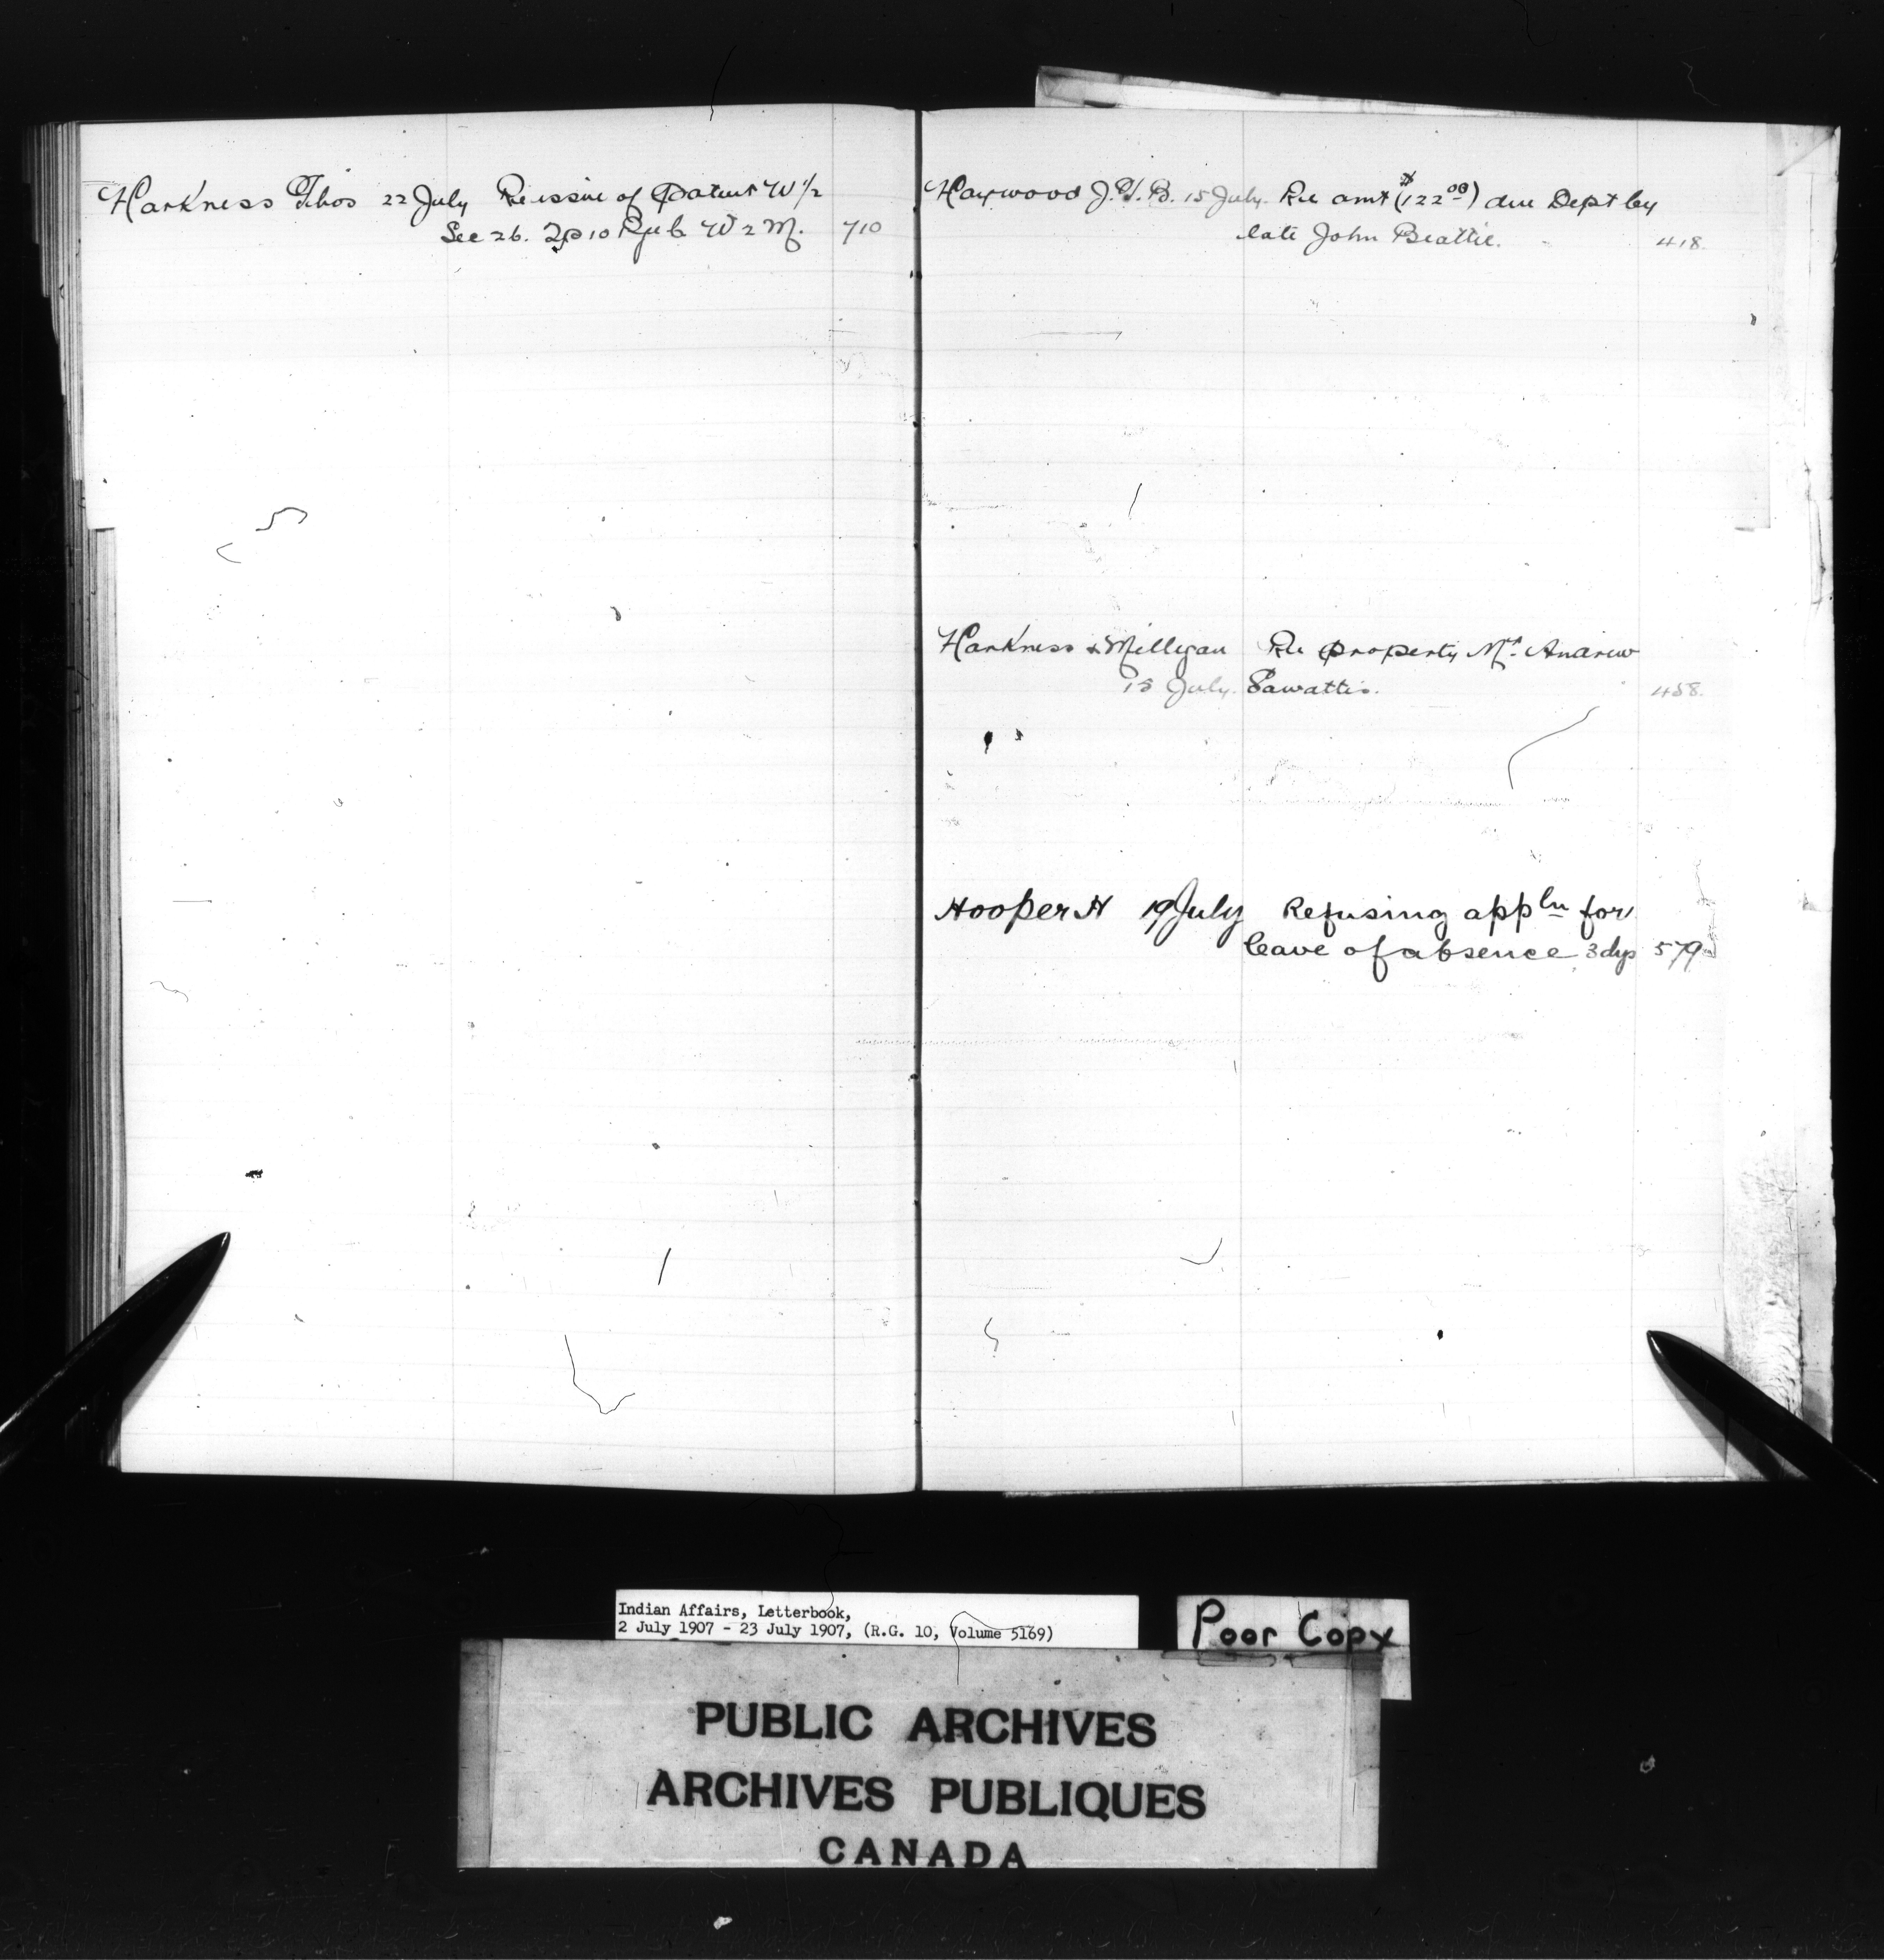 Harkness Thos 22 July Re issue of Patent W 1/2
Sec 26. Tp 10 Rge 6 W 2 M. 710
Haywood J. T. B. 15 July. Re amt ($122.00) due Dept by
late John Beattie. 418.
Harkness & Milligan Re property Mr. Andrew
15 July. Sawattis. 458.
Hooper H 19 July Refusing appln for
leave of absence 3 dys 579
Indian Affairs, Letterbook,
2 July 1907 - 23 July 1907, (R.G. 10, Volume 5169)
Poor Copy
PUBLIC ARCHIVES
ARCHIVES PUBLIQUES
CANADA